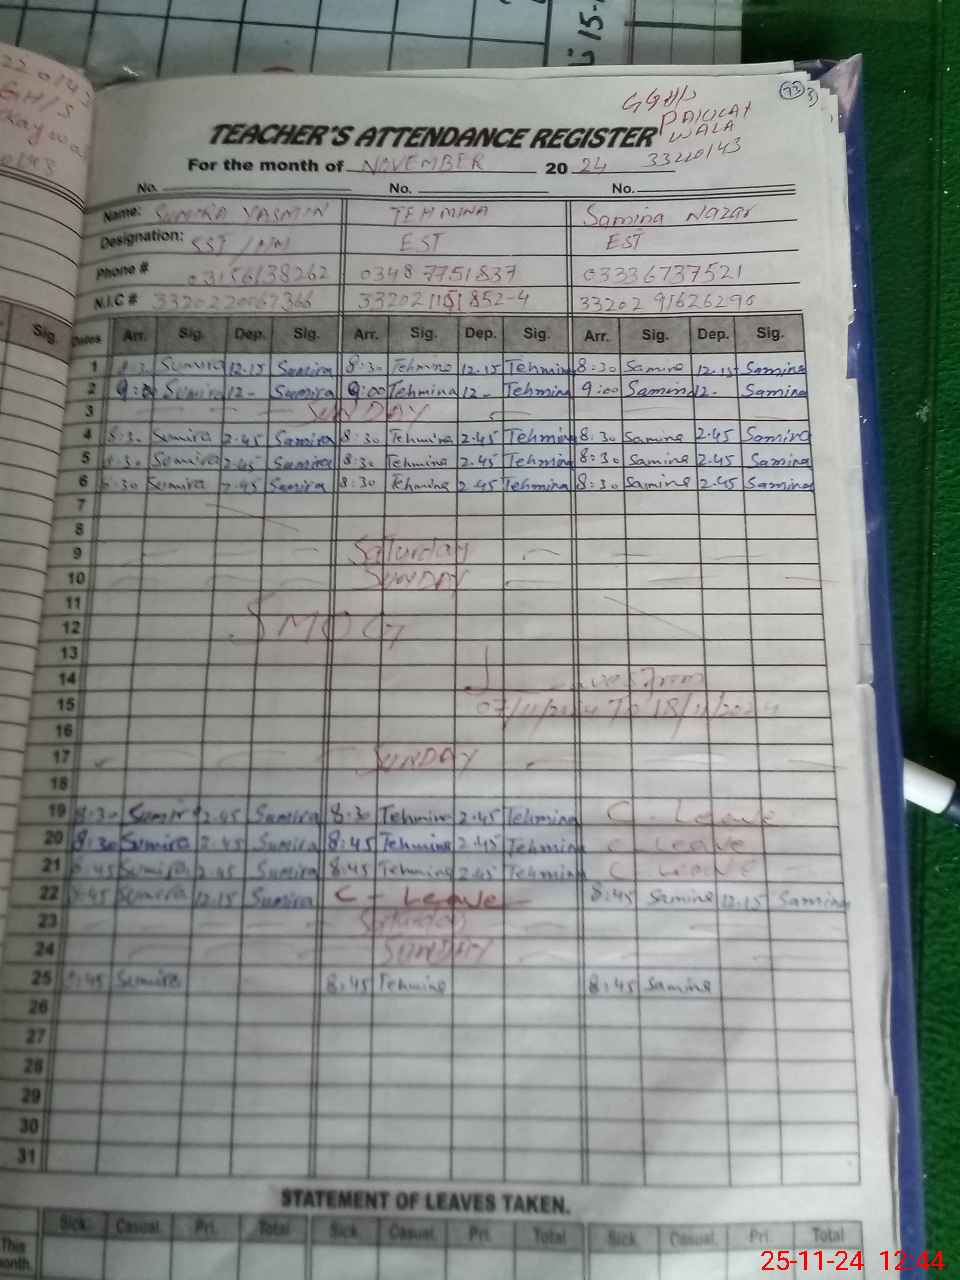 220143
GH/S
0143
15-
73
3
GGH/S
PAKKAY
WALA
33220143
TEACHER'S ATTENDANCE REGISTER
For the month of NOVEMBER 20 24
No. No. No.
Name: SUMIRA YASMIN TEHMINA Samina Nazar
Designation: SST / EST EST
Phone # 03156138262 0348 7751837 03336737521
N.I.C # 3320220067366 33202 1151852-4 33202 91626290
Sig. Dates Arr. Sig. Dep. Sig. Arr. Sig. Dep. Sig. Arr. Sig. Dep. Sig.
1 Sumira 12.15 Sumira 8:30 Tehmina 12.15 Tehmina 8:30 Samina 12.15 Samina
2 9:00 Sumira 12- Sumira 9:00 Tehmina 12- Tehmina 9:00 Samina 12- Samina
3 SUNDAY
4 8:30 Sumira 2.45 Sumira 8:30 Tehmina 2.45 Tehmina 8:30 Samina 2.45 Samina
5 8:30 Sumira 2.45 Sumira 8:30 Tehmina 2.45 Tehmina 8:30 Samina 2.45 Samina
6 8:30 Sumira 2.45 Sumira 8:30 Tehmina 2.45 Tehmina 8:30 Samina 2.45 Samina
7
8
9 Saturday
10 SUNDAY
11
12 SMOG
13
14 Leaves From
15 07/11/2024 To 18/11/2024
16
17 SUNDAY
18
19 8:30 Sumira 2.45 Sumira 8:30 Tehmina 2.45 Tehmina C - Leave
20 8:30 Sumira 2.45 Sumira 8:45 Tehmina 2.45 Tehmina C - Leave
21 8:45 Sumira 2.45 Sumira 8:45 Tehmina 2.45 Tehmina C - Leave
22 8:45 Sumira 12.15 Sumira C - Leave 8:45 Samina 12.15 Samina
23 Saturday
24 SUNDAY
25 8:45 Sumira 8:45 Tehmina 8:45 Samina
26
27
28
29
30
31
STATEMENT OF LEAVES TAKEN.
Sick. Casual. Pri. Total Sick Casual. Pri. Total Sick Casual. Pri. Total
This
month.
25-11-24 12:44